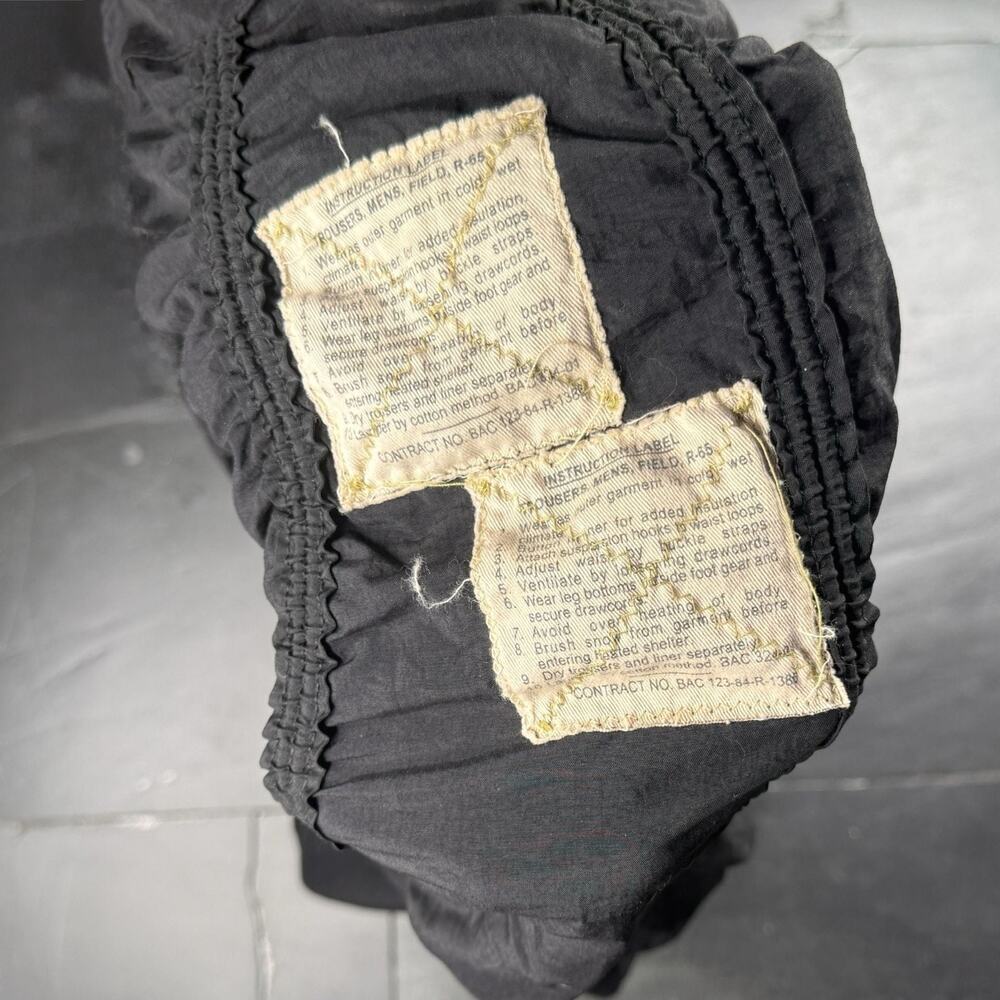 INSTRUCTION LABEL
TROUSERS, MENS, FIELD, R-65
Wear as outer garment in cold wet
climate liner for added insulation.
button suspension hooks waist loops
Adjust waist by buckle straps
5. Ventilate by loosening drawcords.
6. Wear leg bottoms inside foot gear and
secure drawcords
7. Avoid over heating of body
8. Brush snow from garment before
entering heated shelter.
9. Dry trousers and liner separately
by cotton method. BAC
CONTRACT NO. BAC 123-84-R-138
INSTRUCTION LABEL
TROUSERS MENS, FIELD, R-65
Wear as outer garment in cold wet
climate liner for added insulation
3. Attach suspension hooks waist loops
4. Adjust waist by buckle straps
5. Ventilate by loosening drawcords.
6. Wear leg bottoms inside foot gear and
secure drawcords
7. Avoid over heating of body
8. Brush snow from garment before
entering heated shelter.
9. Dry trousers and liner separately
cotton method. BAC
CONTRACT NO. BAC 123-84-R-138